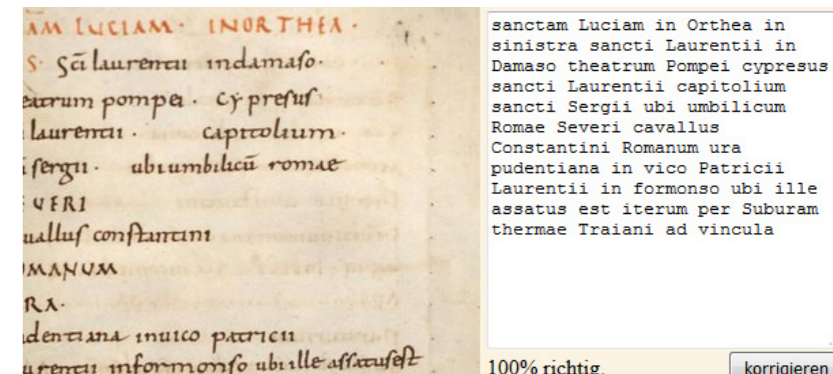 AM LUCIAM · INORTHEA ·
S · Sc̄i laurentii indamaso ·
eatrum pompei · Cypresus
laurentii · capitolium ·
i sergii · ubiumbilicū romae
VERI
uallus constantini
MANUM
RA ·
dentiana inuico patricii
urentii informonso ubi ille assatusest
sanctam Luciam in Orthea in
sinistra sancti Laurentii in
Damaso theatrum Pompei cypresus
sancti Laurentii capitolium
sancti Sergii ubi umbilicum
Romae Severi cavallus
Constantini Romanum ura
pudentiana in vico Patricii
Laurentii in formonso ubi ille
assatus est iterum per Suburam
thermae Traiani ad vincula
100% richtig.
korrigieren